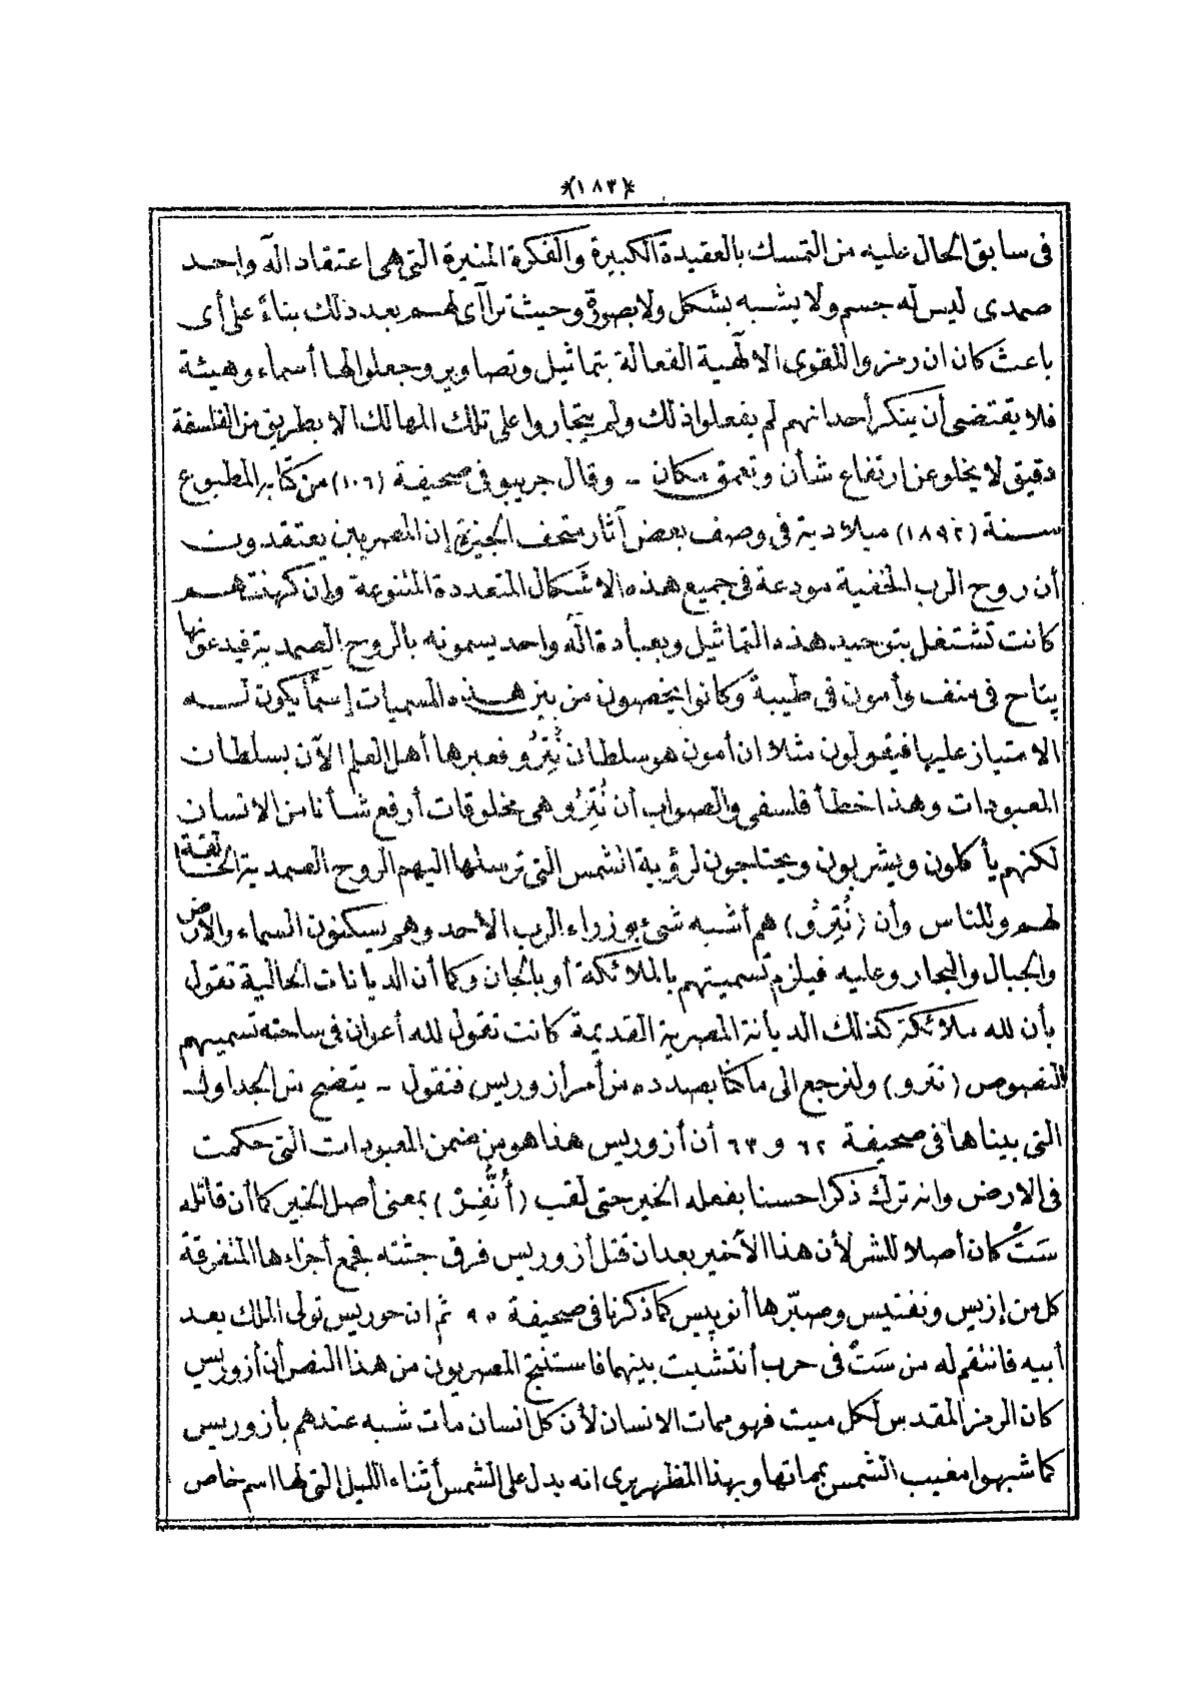 *(١٨٣)*
فى سابق الحال عليه من التمسك بالعقيدة الكبيرة والفكرة المنيرة التى هى اعتقاد الٓه واحد
صمدى ليس له جسم ولا يشبه بشكل ولا بصورة وحيث تراآى لهم بعد ذلك بناءً على أى
باعث كان ان رمزوا للقوى الالٓهية الفعالة بتماثيل وتصاوير وجعلوا لها أسماء وهيئة
فلا يقتضى أن ينكر أحد انهم لم يفعلوا ذلك ولم يتجاروا على تلك المهالك الا بطريق من الفلسفة
دقيق لا يخلو عن ارتفاع شأن وتعمق مكان - وقال جريبو فى صحيفة (١٠٦) من كتابه المطبوع
سنة (١٨٩٢) ميلادية فى وصف بعض آثار متحف الجيزة إن المصريين يعتقدون
أن روح الرب الخفية مودعة فى جميع هذه الاشكال المتعددة المتنوعة وإن كهنتهم
كانت تشتغل بتوحيد هذه التماثيل وبعبادة الٓه واحد يسمونه بالروح الصمدية فيدعونها
بتاح فى منف وأمون فى طيبة وكانوا يخصون من بين هذه المسميات إسمًا يكون له
الامتياز عليها فيقولون مثلا ان أمون هو سلطان نُتِرُو فعبرها أهل العلم الآن بسلطان
المعبودات وهذا خطأ فلسفى والصواب أن نُتِرُو هى مخلوقات أرفع شأنا من الانسان
لكنهم يأكلون ويشربون ويحتاجون لرؤية الشمس التى ترسلها اليهم الروح الصمدية الخالقة
لهم وللناس وأن (نُتِرُو) هم أشبه شئ بوزراء الرب الأحد وهم يسكنون السماء والأرض
والجبال والبحار وعليه فيلزم تسميتهم بالملائكة أو بالجان وكما أن الديانات الحالية تقول
بأن لله ملائكة كذلك الديانة المصرية القديمة كانت تقول لله أعوان فى ساحته تسميهم
النصوص (نترو) ولنرجع الى ما كنا بصدده من أمر أزوريس فنقول - يتضح من الجداول
التى بيناها فى صحيفة ٦٢ و ٦٣ أن أزوريس هذا هو من ضمن المعبودات التى حكمت
فى الارض وانه ترك ذكرا حسنا بفعله الخير حتى لقب (أُنُّفِرْ) بمعنى أصل الخير كما أن قاتله
سَتْ كان أصلا للشر لأن هذا الأخير بعد ان قتل أزوريس فرق جثته فجمع أجزاءها المتفرقة
كل من إزيس ونفتيس وصبّرها أنوبيس كما ذكرنا فى صحيفة ٩٥ ثم ان حوريس تولى الملك بعد
أبيه فانتقم له من سَتْ فى حرب أنتشبت بينهما فاستنتج المصريون من هذا النص أن أزوريس
كان الرمز المقدس لكل ميت فهو ممات الانسان لأن كل انسان مات شبه عندهم بأزوريس
كما شبهوا مغيب الشمس بمماتها وبهذا المظهر يرى انه يدل على الشمس أثناء الليل التى لها اسم خاص